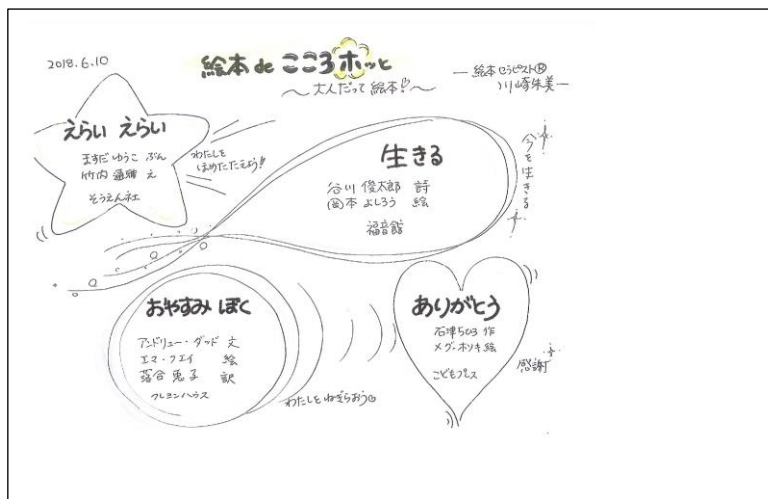 2018.6.10
絵本 de こころホッと
～大人だって絵本!!～
― 絵本セラピスト®
川崎朱美―
えらい えらい
ますだ ゆうこ ぶん
竹内 通雅 え
そうえん社
わたしを
ほめたたえよう!
生きる
谷川 俊太郎 詩
岡本 よしろう 絵
福音館
今を生きる
おやすみ ぼく
アンドリュー・ダッド 文
エマ・クエイ 絵
落合 恵子 訳
クレヨンハウス
わたしをねぎらおう
ありがとう
石津ちひろ 作
メグ・ホソキ 絵
こどもプレス
感謝